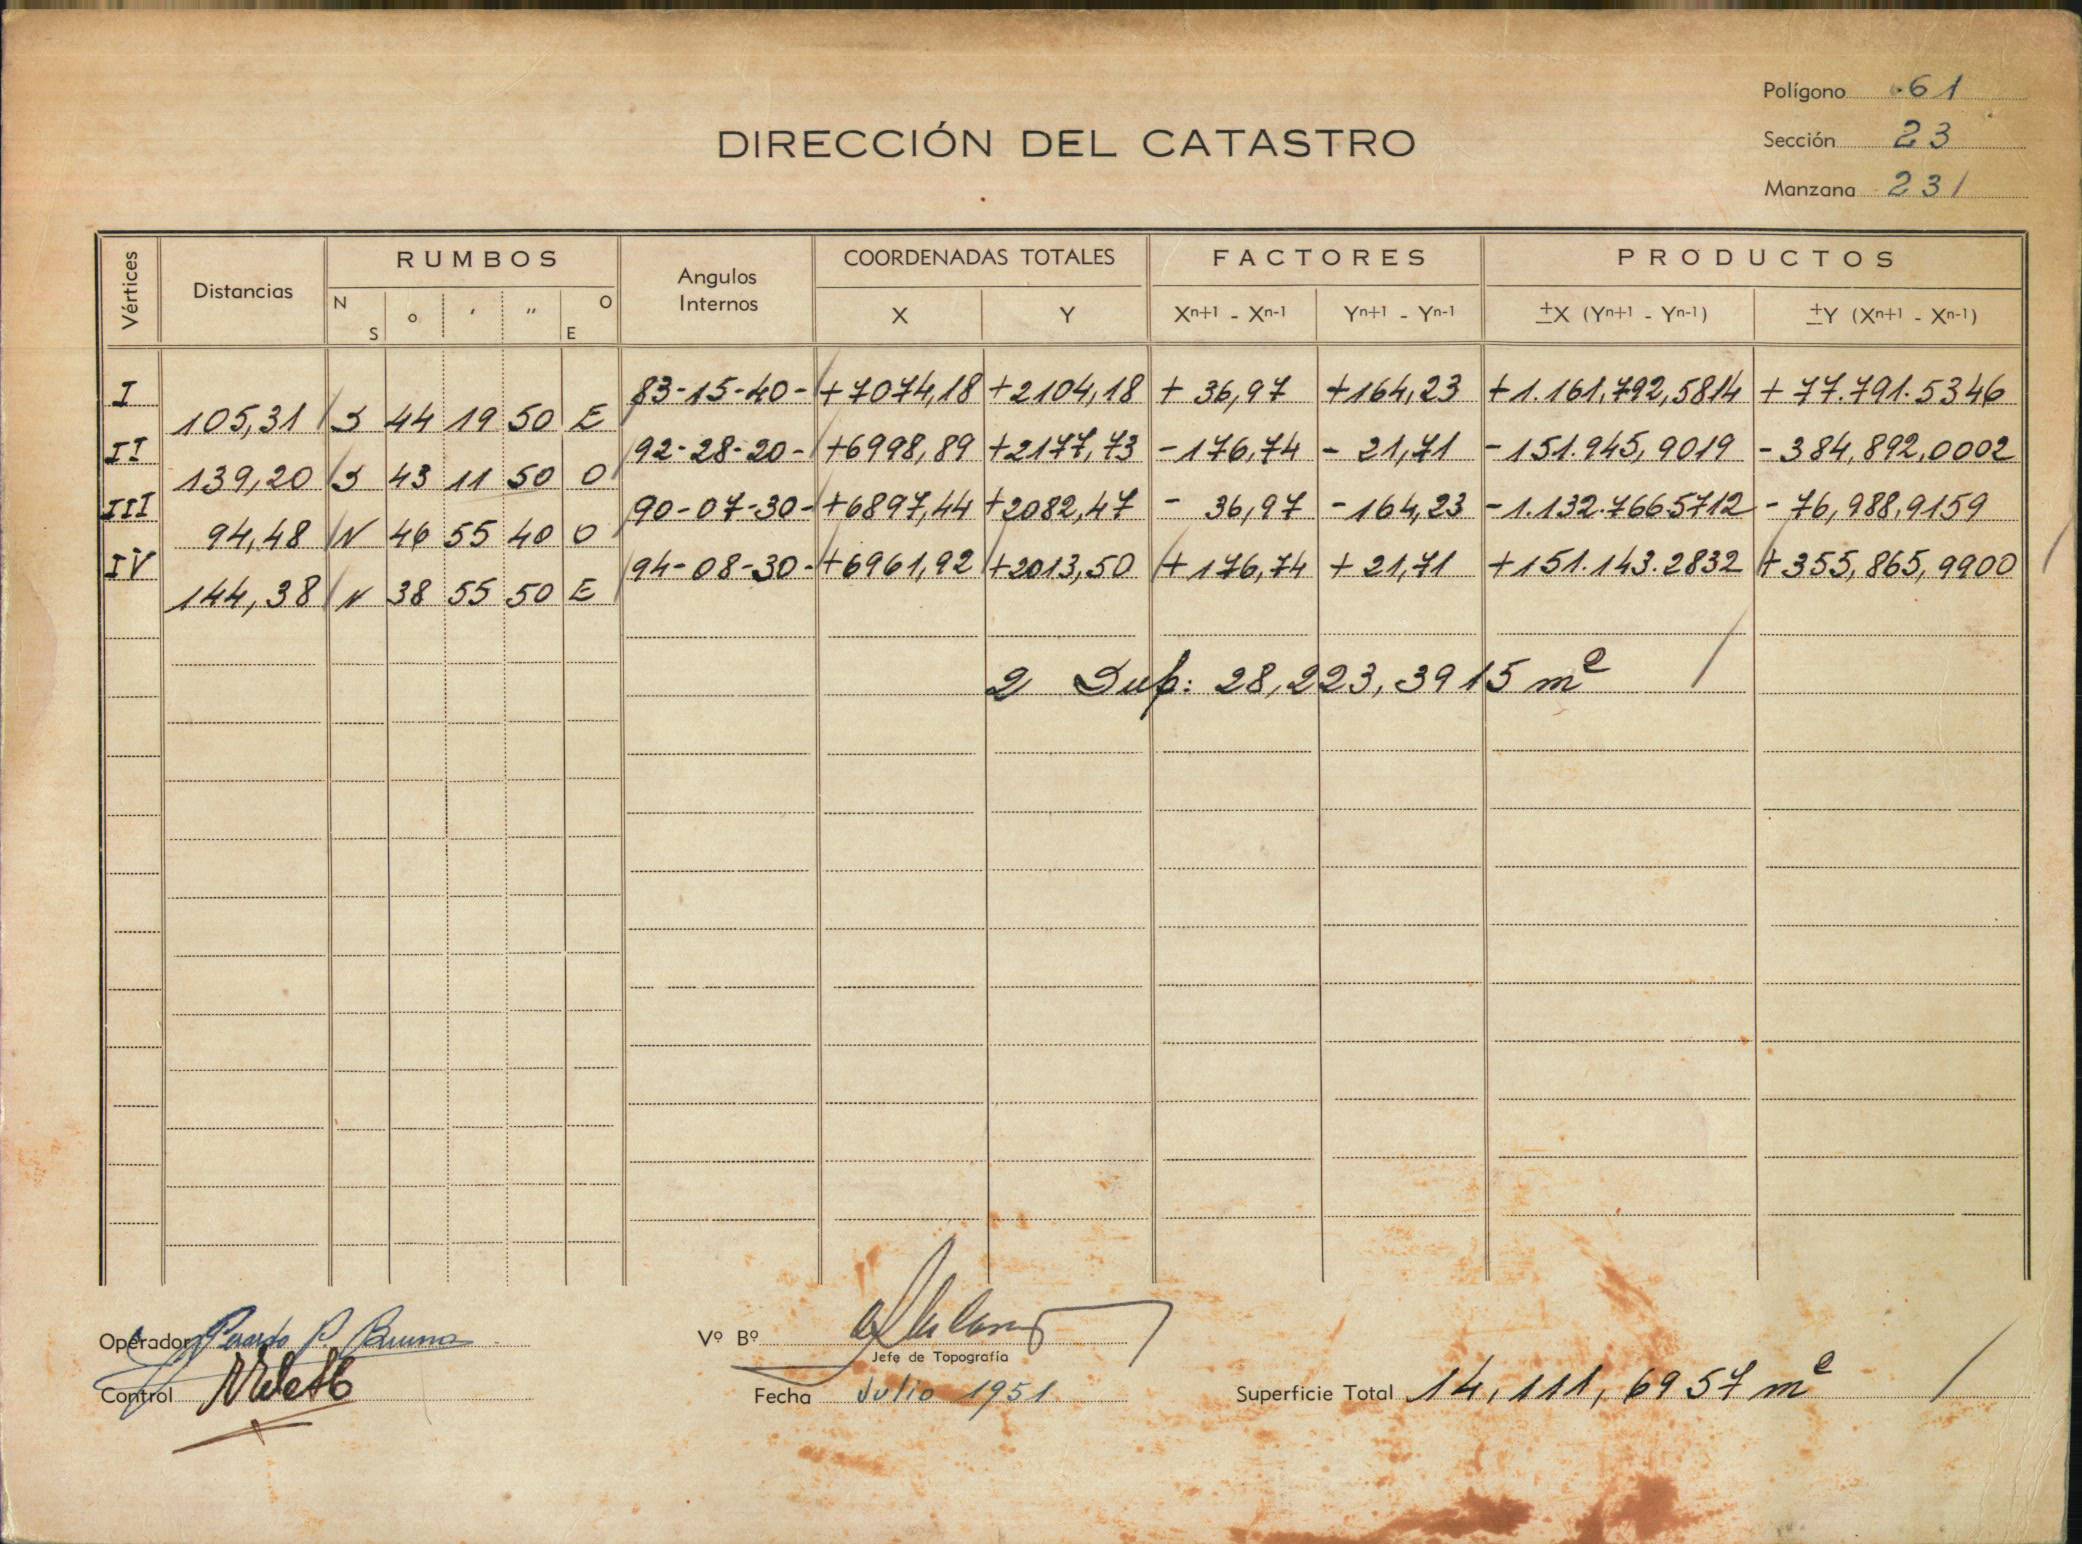 Polígono 61
DIRECCIÓN DEL CATASTRO
Sección 23
Manzana 231
Vértices Distancias RUMBOS Angulos Internos COORDENADAS TOTALES FACTORES PRODUCTOS
N S o ' " O E X Y Xn+1 - Xn-1 Yn+1 - Yn-1 ±X (Yn+1 - Yn-1) ±Y (Xn+1 - Xn-1)
I 83-15-40- +7074,18 +2104,18 + 36,97 +164,23 +1.161.792,5814 + 77.791.5346
105,31 S 44 19 50 E
II 92-28-20- +6998,89 +2177,73 -176,74 - 21,71 -151.945,9019 -384,892,0002
139,20 S 43 11 50 O
III 90-07-30- +6897,44 +2082,47 - 36,97 -164,23 -1.132.766.5712 - 76,988,9159
94,48 N 46 55 40 O
IV 94-08-30- +6961,92 +2013,50 + 176,74 + 21,71 +151.143.2832 +355,865,9900
144,38 N 38 55 50 E
2 Sup: 28,223,3915 m²
Operador
Vº Bº
Jefe de Topografía
Control
Fecha Julio 1951
Superficie Total 14,111,6957 m²